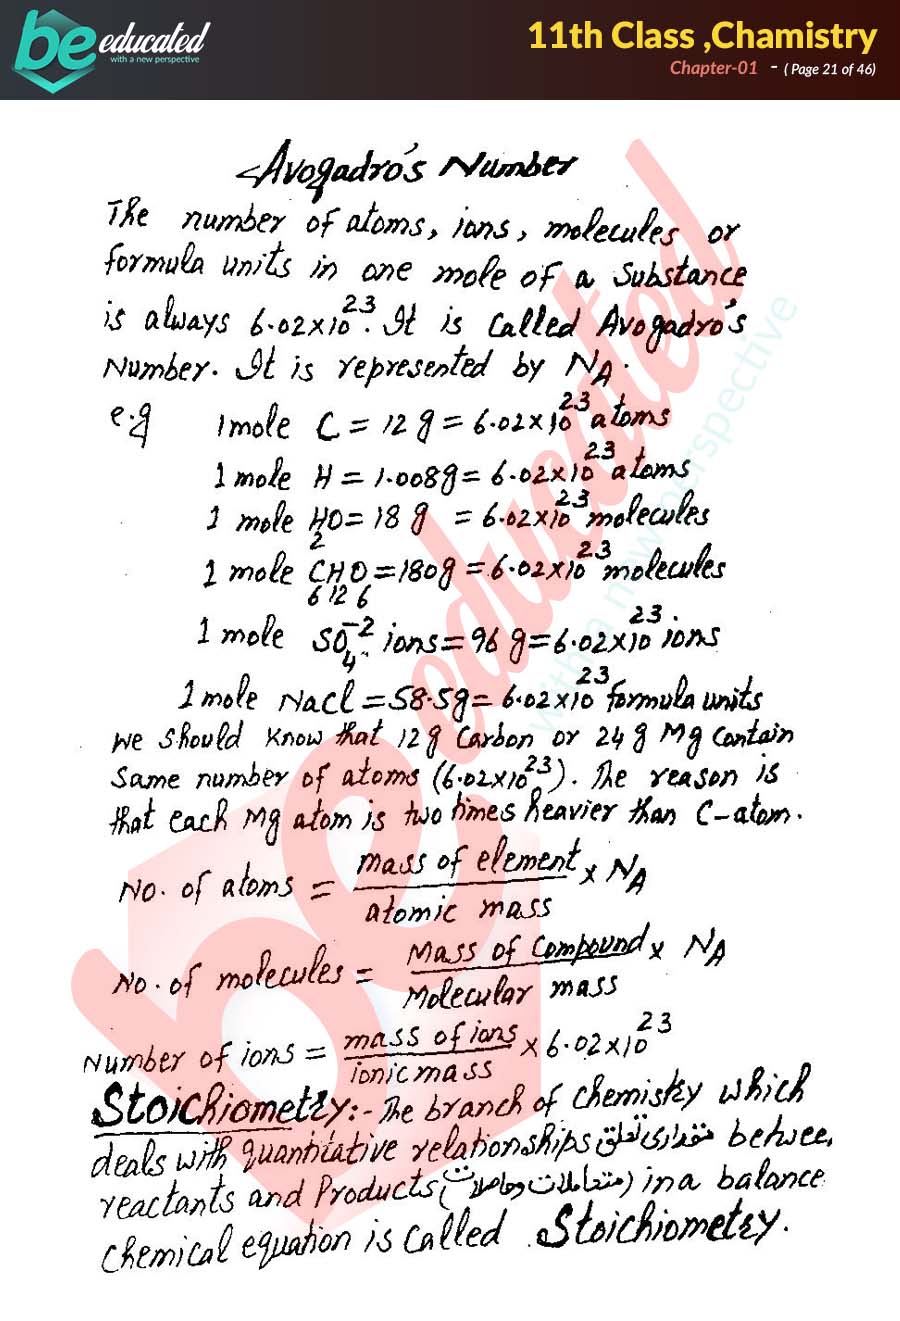 be educated
with a new perspective
11th Class ,Chamistry
Chapter-01 - ( Page 21 of 46)
Avogadro's Number
The number of atoms, ions, molecules or
formula units in one mole of a substance
is always 6.02×10²³. It is called Avogadro's
Number. It is represented by N_A.
e.g 1mole C = 12 g = 6.02×10²³ atoms
1 mole H = 1.008g = 6.02×10²³ atoms
1 mole H₂O = 18 g = 6.02×10²³ molecules
1 mole C₆H₁₂O₆ = 180g = 6.02×10²³ molecules
1 mole SO₄⁻² ions = 96 g = 6.02×10²³ ions
1 mole Nacl = 58.5g = 6.02×10²³ formula units
We should know that 12g Carbon or 24 g Mg contain
same number of atoms (6.02×10²³). The reason is
that each Mg atom is two times heavier than C-atom.
No. of atoms = mass of element / atomic mass × N_A
No. of molecules = Mass of compound / Molecular mass × N_A
Number of ions = mass of ions / ionic mass × 6.02×10²³
Stoichiometry:- The branch of chemistry which
deals with quantitative relationships مقداری تعلق betwee
reactants and Products (متعاملات و حاصلات) in a balance
chemical equation is called Stoichiometry.
be educated
with a new perspective